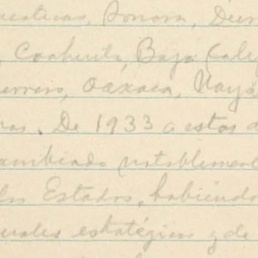 Sonora, Dur
Coahuila, Baja Cali
errero, Oaxaca, Naya
as. De 1933 a estos d
ambiado notablement
los Estados, habiéndo
urales estratégicos y de